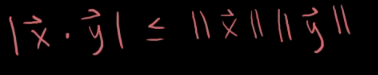 |x⃗ · y⃗| ≤ ||x⃗|| ||y⃗||